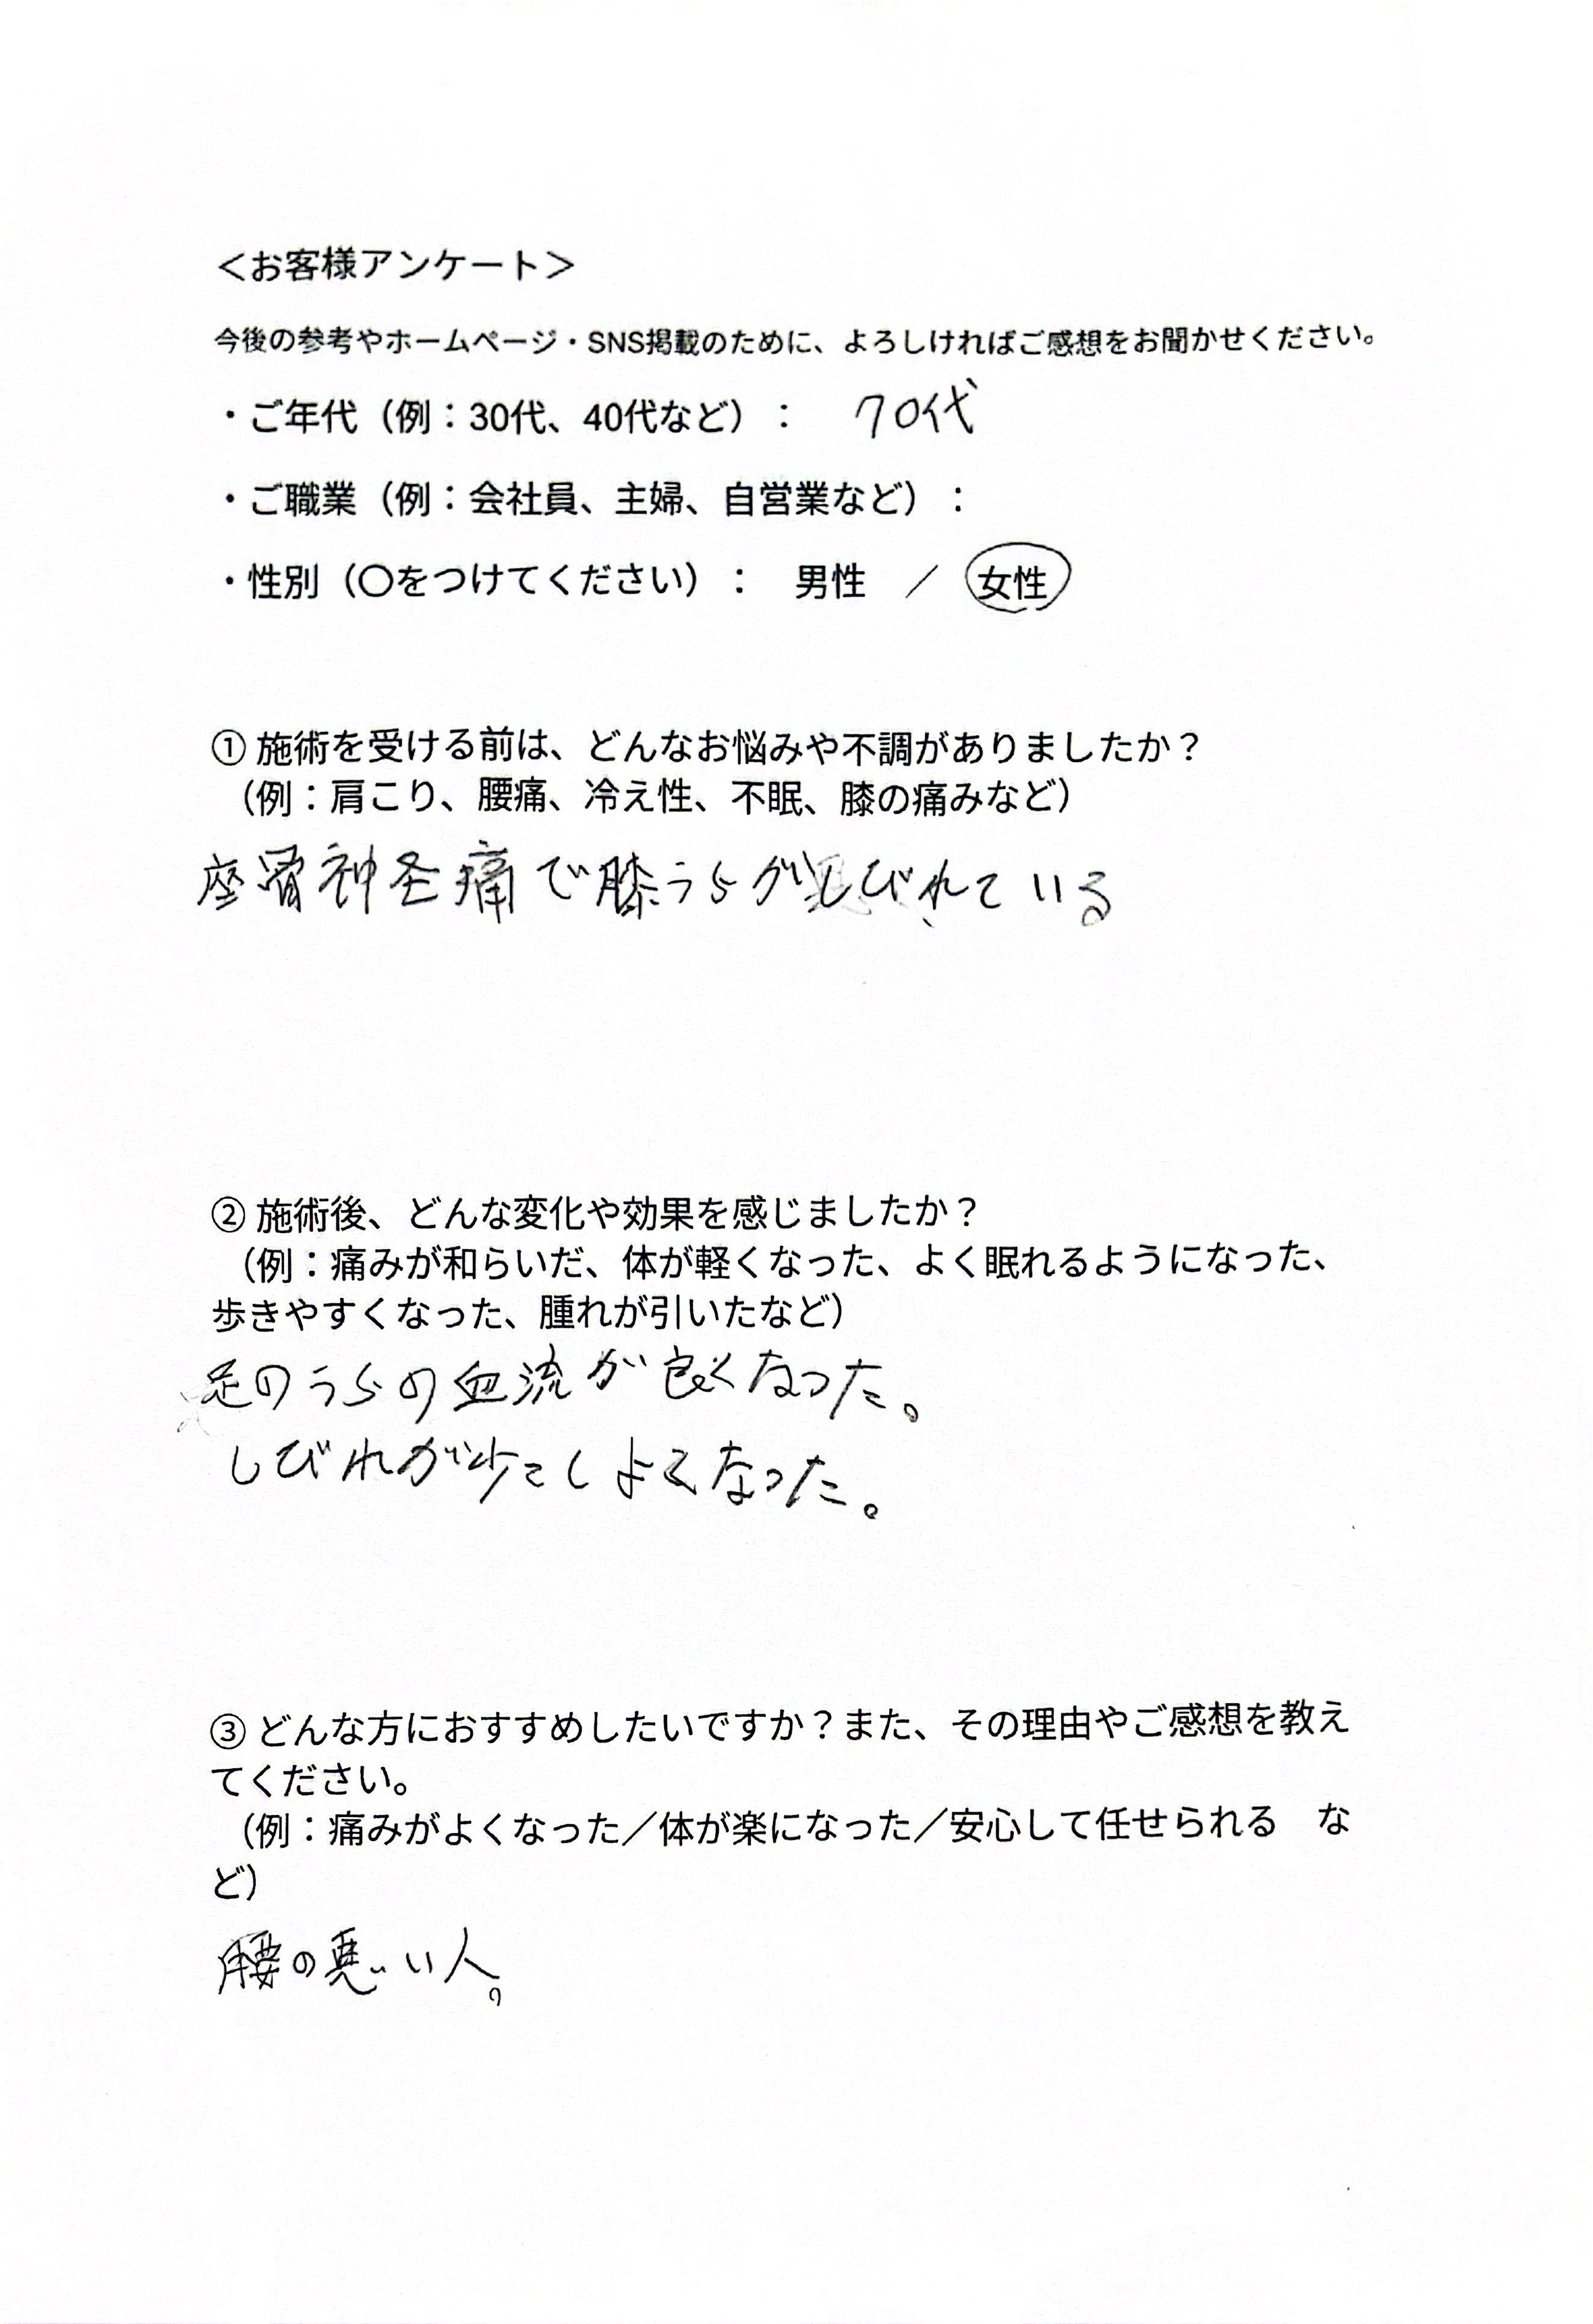 ＜お客様アンケート＞
今後の参考やホームページ・SNS掲載のために、よろしければご感想をお聞かせください。
・ご年代（例：30代、40代など）： 70代
・ご職業（例：会社員、主婦、自営業など）：
・性別（〇をつけてください）： 男性 ／ 女性
① 施術を受ける前は、どんなお悩みや不調がありましたか？
（例：肩こり、腰痛、冷え性、不眠、膝の痛みなど）
座骨神経痛で膝うらがしびれている
② 施術後、どんな変化や効果を感じましたか？
（例：痛みが和らいだ、体が軽くなった、よく眠れるようになった、
歩きやすくなった、腫れが引いたなど）
足のうらの血流が良くなった。
しびれが少こしよくなった。
③ どんな方におすすめしたいですか？また、その理由やご感想を教え
てください。
（例：痛みがよくなった／体が楽になった／安心して任せられる　な
ど）
腰の悪い人。